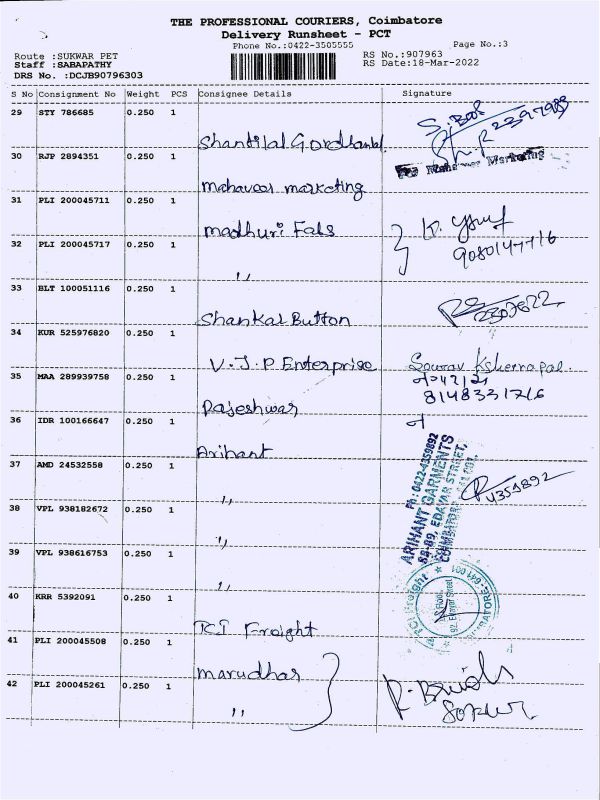 THE PROFESSIONAL COURIERS, Coimbatore
Delivery Runsheet - PCT
Phone No.:0422-3505555
Page No.:3
Route :SUKWAR PET
RS No.:907963
Staff :SABAPATHY
RS Date:18-Mar-2022
DRS No. :DCJB90796303
S No Consignment No Weight PCS Consignee Details Signature
29 STY 786685 0.250 1
Shantilal Gordhanlal
30 RJP 2894351 0.250 1
Mahaveer marketing
31 PLI 200045711 0.250 1
madhuri Fals
32 PLI 200045717 0.250 1
9080147716
"
33 BLT 100051116 0.250 1
Shankar Button
2307622
34 KUR 525976820 0.250 1
V.J.P Enterprise
35 MAA 289939758 0.250 1
8148331716
Rajeshwar
36 IDR 100166647 0.250 1
Arihant
37 AMD 24532558 0.250 1
4359892
"
38 VPL 938182672 0.250 1
"
39 VPL 938616753 0.250 1
"
Ph: 0422-4359892
ARIHANT GARMENTS
88-89, EDAYAR STREET,
40 KRR 5392091 0.250 1
TCI Freight
41 PLI 200045508 0.250 1
marudhar
42 PLI 200045261 0.250 1
"